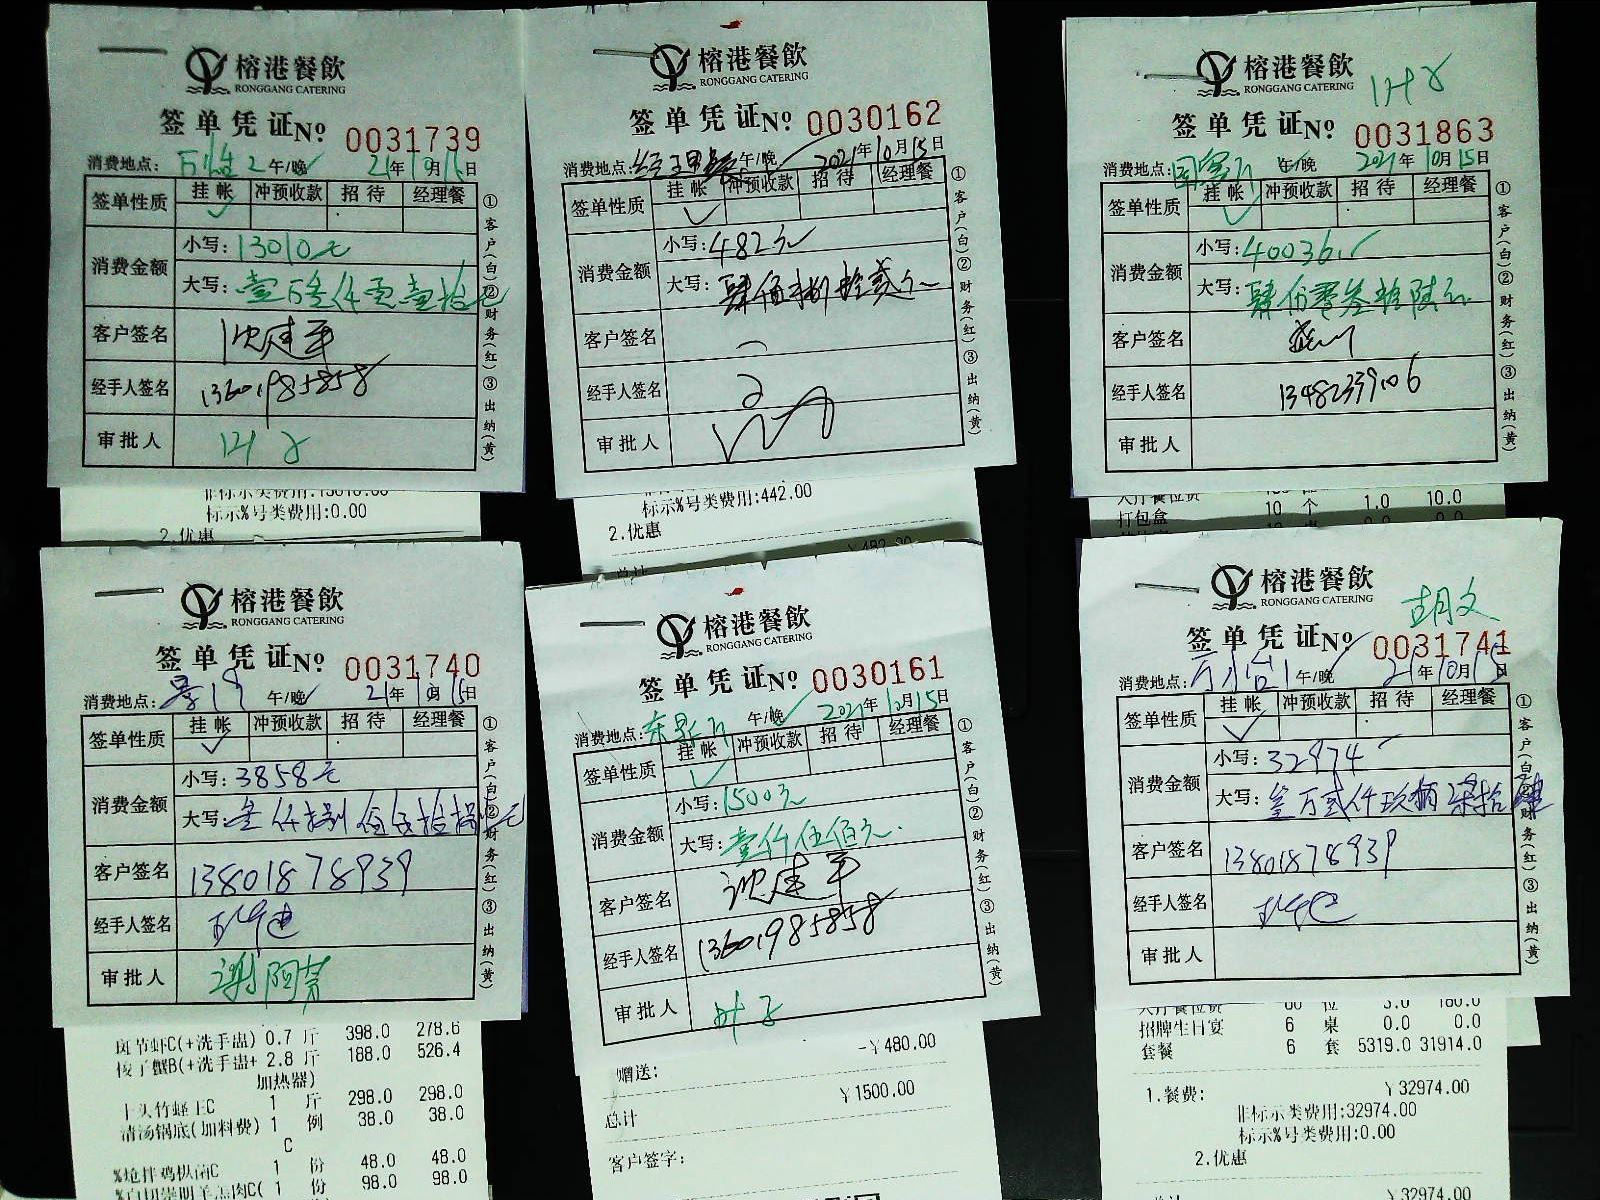 榕港餐飲
RONGGANG CATERING
签单凭证№ 0031739
消费地点: 2 午/晚 21年10月15日
签单性质 挂帐 冲预收款 招待 经理餐
✓
消费金额 小写:13010元
大写:壹万叁仟零壹拾元
客户签名 沈建平
经手人签名 13601985858
审批人 叶
①客户(白)②财务(红)③出纳(黄)
非标示类费用:13010.00
标示%号类费用:0.00
2.优惠
榕港餐飲
RONGGANG CATERING
签单凭证№ 0030162
消费地点: 午/晚 2021年10月15日
签单性质 挂帐 冲预收款 招待 经理餐
✓
消费金额 小写:482元
大写:肆佰捌拾贰元
客户签名
经手人签名
审批人
①客户(白)②财务(红)③出纳(黄)
标示%号类费用:442.00
2.优惠
总计 ¥482.00
榕港餐飲
RONGGANG CATERING
签单凭证№ 0031863
消费地点: 午/晚 2021年10月15日
签单性质 挂帐 冲预收款 招待 经理餐
✓
消费金额 小写:40036
大写:肆万零叁拾陆元
客户签名
经手人签名 13482339106
审批人
①客户(白)②财务(红)③出纳(黄)
大厅餐位费
打包盒 10 个 1.0 10.0
榕港餐飲
RONGGANG CATERING
签单凭证№ 0031740
消费地点: 午/晚 21年10月15日
签单性质 挂帐 冲预收款 招待 经理餐
✓
消费金额 小写:3858元
大写:叁仟捌佰伍拾捌元
客户签名 13801878939
经手人签名
审批人 谢阿芳
①客户(白)②财务(红)③出纳(黄)
斑节虾C(+洗手盅) 0.7 斤 398.0 278.6
梭子蟹B(+洗手盅+ 2.8 斤 188.0 526.4
加热器)
1 斤 298.0 298.0
清汤锅底(加料费) 1 例 38.0 38.0
C
%炝拌鸡枞菌C 1 份 48.0 48.0
%白切崇明羊羔肉C( 1 份 98.0 98.0
榕港餐飲
RONGGANG CATERING
签单凭证№ 0030161
消费地点: 午/晚 2021年10月15日
签单性质 挂帐 冲预收款 招待 经理餐
✓
消费金额 小写:1500元
大写:壹仟伍佰元.
客户签名 沈建平
经手人签名 13601985858
审批人 叶
①客户(白)②财务(红)③出纳(黄)
赠送: -¥480.00
总计 ¥1500.00
客户签字:
榕港餐飲
RONGGANG CATERING
胡文
签单凭证№ 0031741
消费地点: 午/晚 21年10月15日
签单性质 挂帐 冲预收款 招待 经理餐
✓
消费金额 小写:32974
大写:叁万贰仟玖佰柒拾肆
客户签名 13801878939
经手人签名
审批人
①客户(白)②财务(红)③出纳(黄)
大厅餐位费 60 位 3.0 180.0
招牌生日宴 6 桌 0.0 0.0
套餐 6 套 5319.0 31914.0
1.餐费: ¥32974.00
非标示类费用:32974.00
标示%号类费用:0.00
2.优惠
总计 ¥32974.00